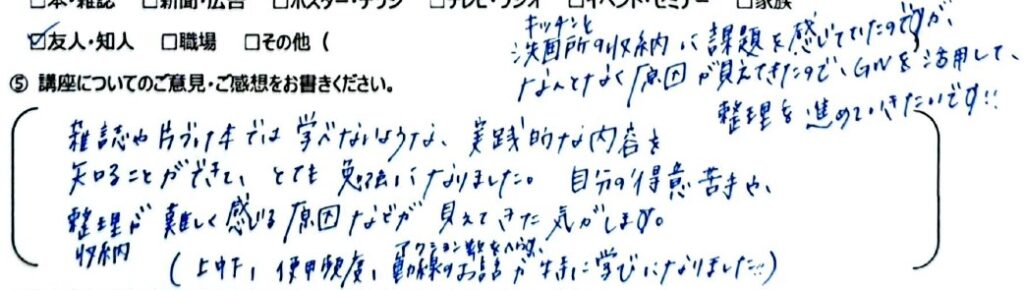 □本・雑誌 □新聞・広告 □ポスター・チラシ □テレビ・ラジオ □イベント・セミナー □家族
☑友人・知人 □職場 □その他 (
⑤ 講座についてのご意見・ご感想をお書きください。
キッチンと
洗面所の収納に課題を感じていたのですが、
なんとなく原因が見えてきたので、GWを活用して、
整理を進めていきたいです!!
雑誌や片づけ本では学べないような、実践的な内容を
知ることができて、とても勉強になりました。 自分の得意苦手や、
整理が難しく感じる原因などが見えてきた気がします。
収納
アクション数をへらす、
(上中下、使用頻度、動線のお話が特に学びになりました!!)